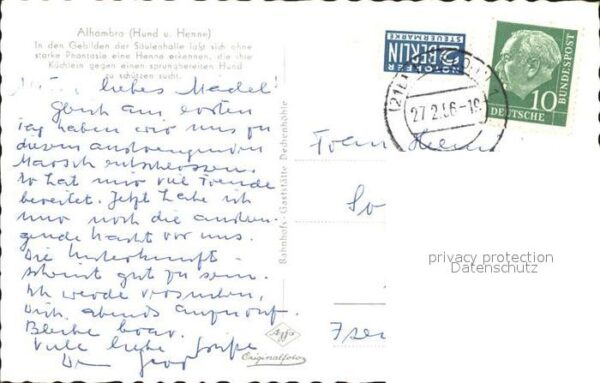 Alhambra (Hund u. Henne)
In den Gebilden der Säulenhalle läßt sich ohne
starke Phantasie eine Henne erkennen, die ihre
Küchlein gegen einen sprungbereiten Hund
zu schützen sucht.
liebes Madel!
Gleich am ersten
Tag haben wir uns zu
diesem anstrengenden
Marsch entschlossen.
Er hat mir viel Freude
bereitet. Jetzt habe ich
nur noch die anstren-
gende Nacht vor uns.
Die Unterkunft
scheint gut zu sein.
Ich werde versuchen,
Dich abends anzuruf.
Bleibe brav.
Viele liebe Grüße
Bahnhofs-Gaststätte Dechenhöhle
Agfa
Originalfoto
NOTOPFER
2 BERLIN
STEUERMARKE
(21b)
27.2.56-18
10
DEUTSCHE
BUNDESPOST
Frau
So
Iser
privacy protection
Datenschutz